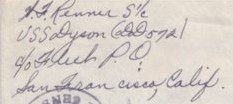 H.F. Renner S1/c
USS Dyson (DD 572)
c/o Fleet P.O.
San Francisco, Calif.